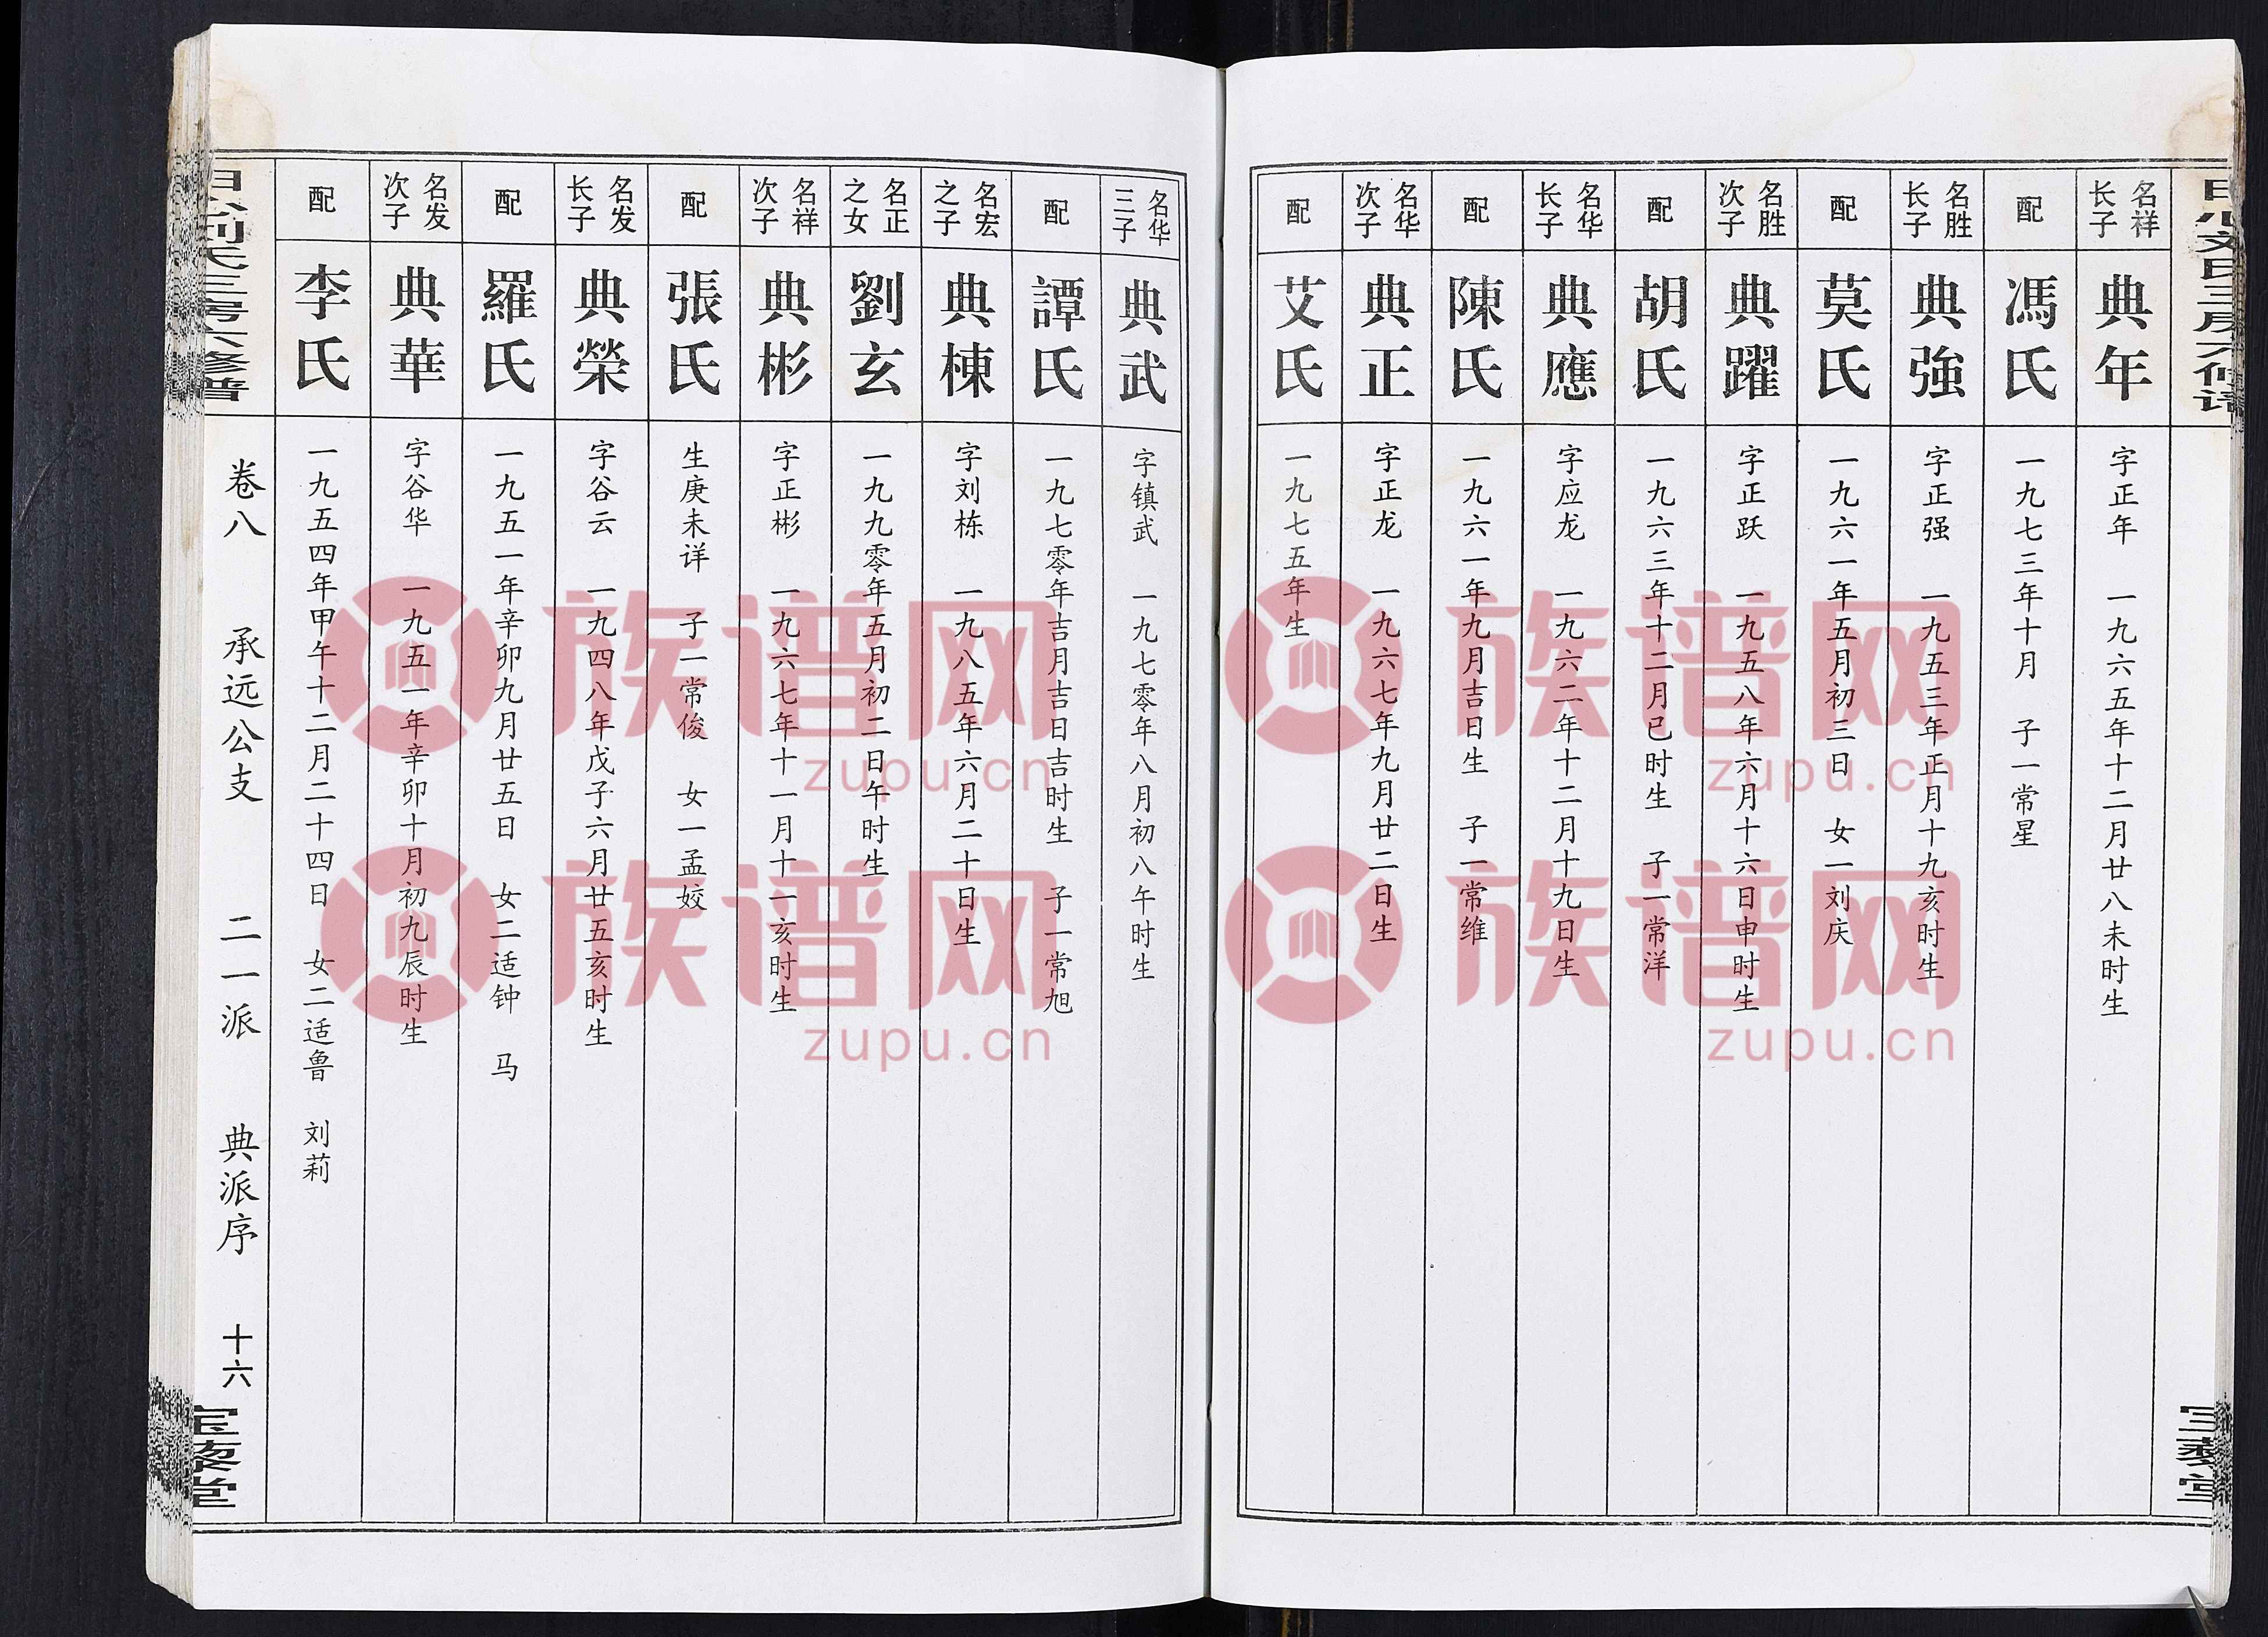 名祥长子
典年
字正年 一九六五年十二月廿八未时生
配
馮氏
一九七三年十月 子一常星
名胜长子
典強
字正强 一九五三年正月十九亥时生
配
莫氏
一九六一年五月初三日 女一刘庆
名胜次子
典躍
字正跃 一九五八年六月十六日申时生
配
胡氏
一九六三年十二月巳时生 子一常洋
名华长子
典應
字应龙 一九六二年十二月十九日生
配
陳氏
一九六一年九月吉日生 子一常维
名华次子
典正
字正龙 一九六七年九月廿二日生
配
艾氏
一九七五年生
名华三子
典武
字镇武 一九七零年八月初八午时生
配
譚氏
一九七零年吉月吉日吉时生 子一常旭
名宏之子
典棟
字刘栋 一九八五年六月二十日生
名正之女
劉玄
一九九零年五月初二日午时生
名祥次子
典彬
字正彬 一九六七年十一月十一亥时生
配
張氏
生庚未详 子一常俊 女一孟姣
名发长子
典榮
字谷云 一九四八年戊子六月廿五亥时生
配
羅氏
一九五一年辛卯九月廿五日 女二适钟 马
名发次子
典華
字谷华 一九五一年辛卯十月初九辰时生
配
李氏
一九五四年甲午十二月二十四日 女二适鲁 刘莉
刘氏三房六修谱
卷八 承远公支 二一派 典派序 十六
族谱网
zupu.cn
族谱网
zupu.cn
族谱网
zupu.cn
族谱网
zupu.cn